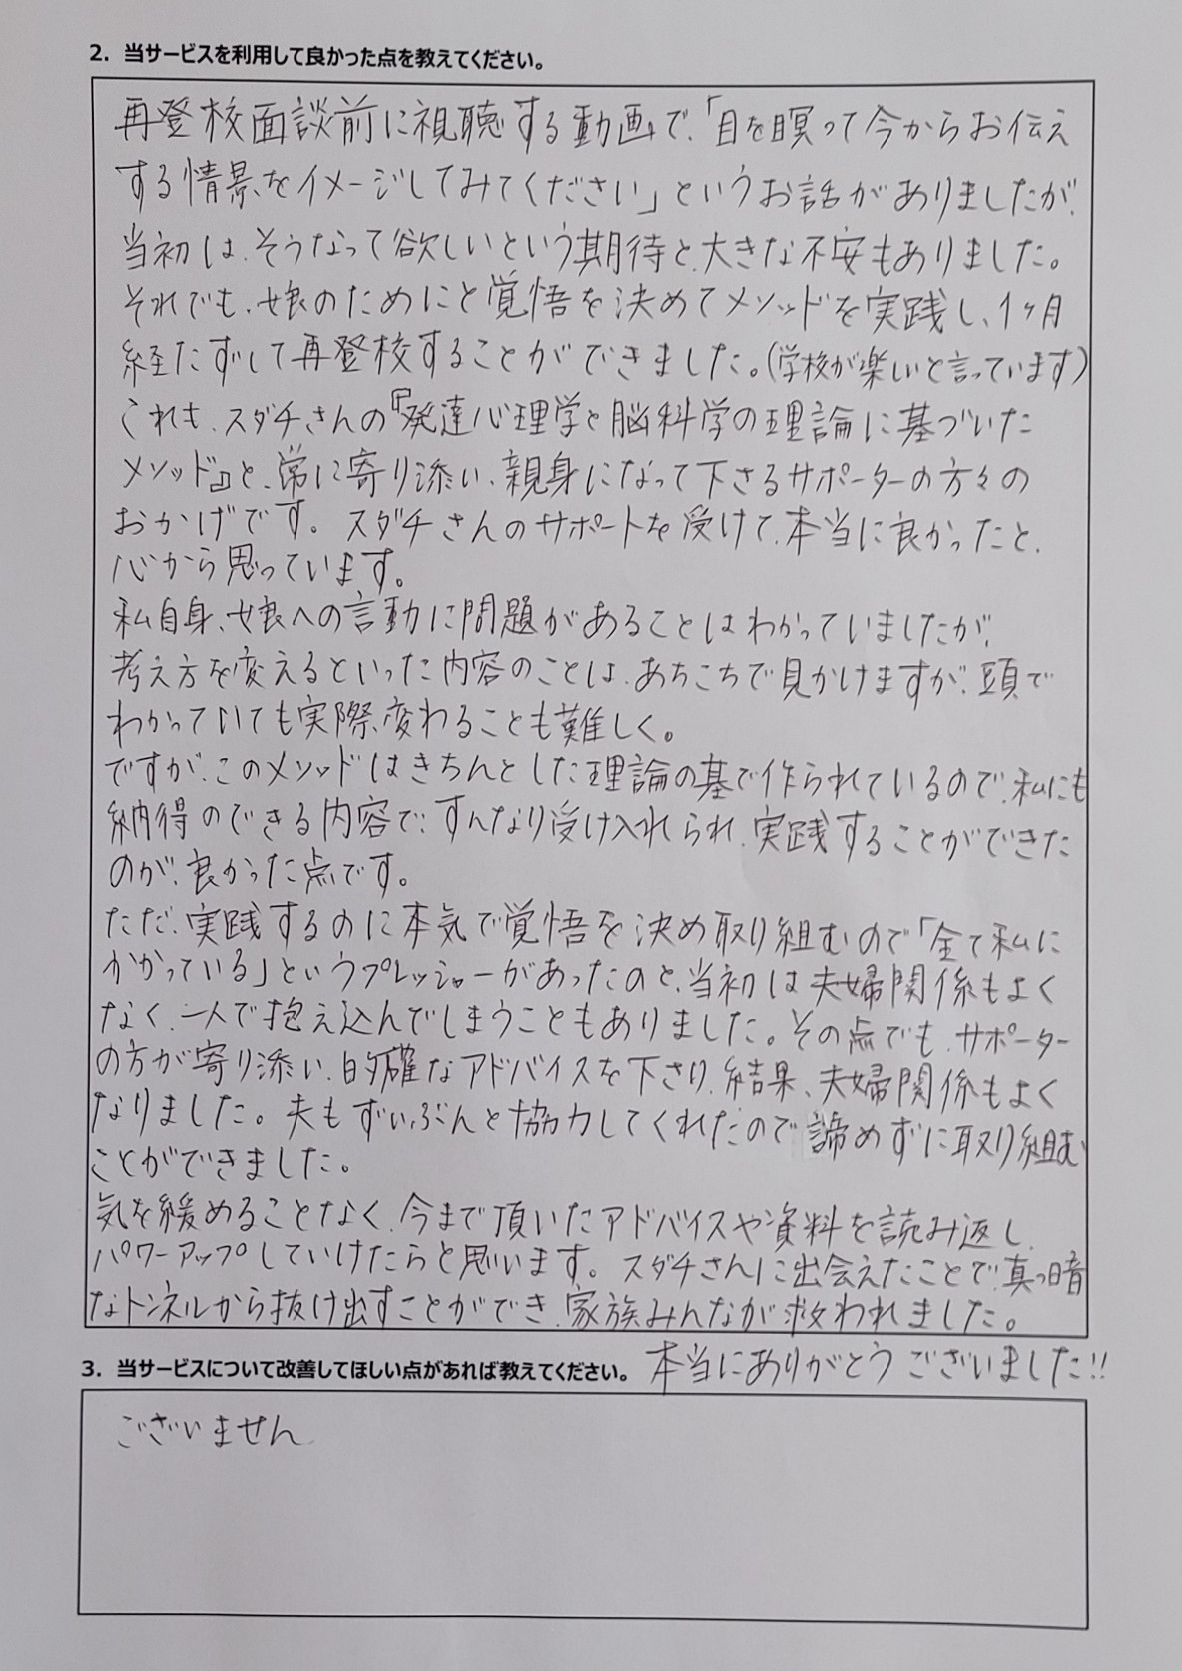 2. 当サービスを利用して良かった点を教えてください。
再登校面談前に視聴する動画で、「目を瞑って今からお伝え
する情景をイメージしてみてください」というお話がありましたが、
当初は、そうなって欲しいという期待と、大きな不安もありました。
それでも、娘のためにと覚悟を決めてメソッドを実践し、1ヶ月
経たずして再登校することができました。(学校が楽しいと言っています)
これも、スダチさんの『発達心理学と脳科学の理論に基づいた
メソッド』と、常に寄り添い、親身になって下さるサポーターの方々の
おかげです。スダチさんのサポートを受けて、本当に良かったと、
心から思っています。
私自身、娘への言動に問題があることはわかっていましたが、
考え方を変えるといった内容のことは、あちこちで見かけますが、頭で
わかっていても実際変わることも難しく。
ですが、このメソッドはきちんとした理論の基で作られているので、私にも
納得のできる内容で、すんなり受け入れられ、実践することができた
のが、良かった点です。
ただ、実践するのに本気で覚悟を決め取り組むので「全て私に
かかっている」というプレッシャーがあったのと、当初は夫婦関係もよく
なく、一人で抱え込んでしまうこともありました。その点でも、サポーター
の方が寄り添い、的確なアドバイスを下さり、結果、夫婦関係もよく
なりました。夫もずいぶんと協力してくれたので諦めずに取り組む
ことができました。
気を緩めることなく、今まで頂いたアドバイスや資料を読み返し、
パワーアップしていけたらと思います。スダチさんに出会えたことで、真っ暗
なトンネルから抜け出すことができ、家族みんなが救われました。
本当にありがとうございました!!
3. 当サービスについて改善してほしい点があれば教えてください。
ございません